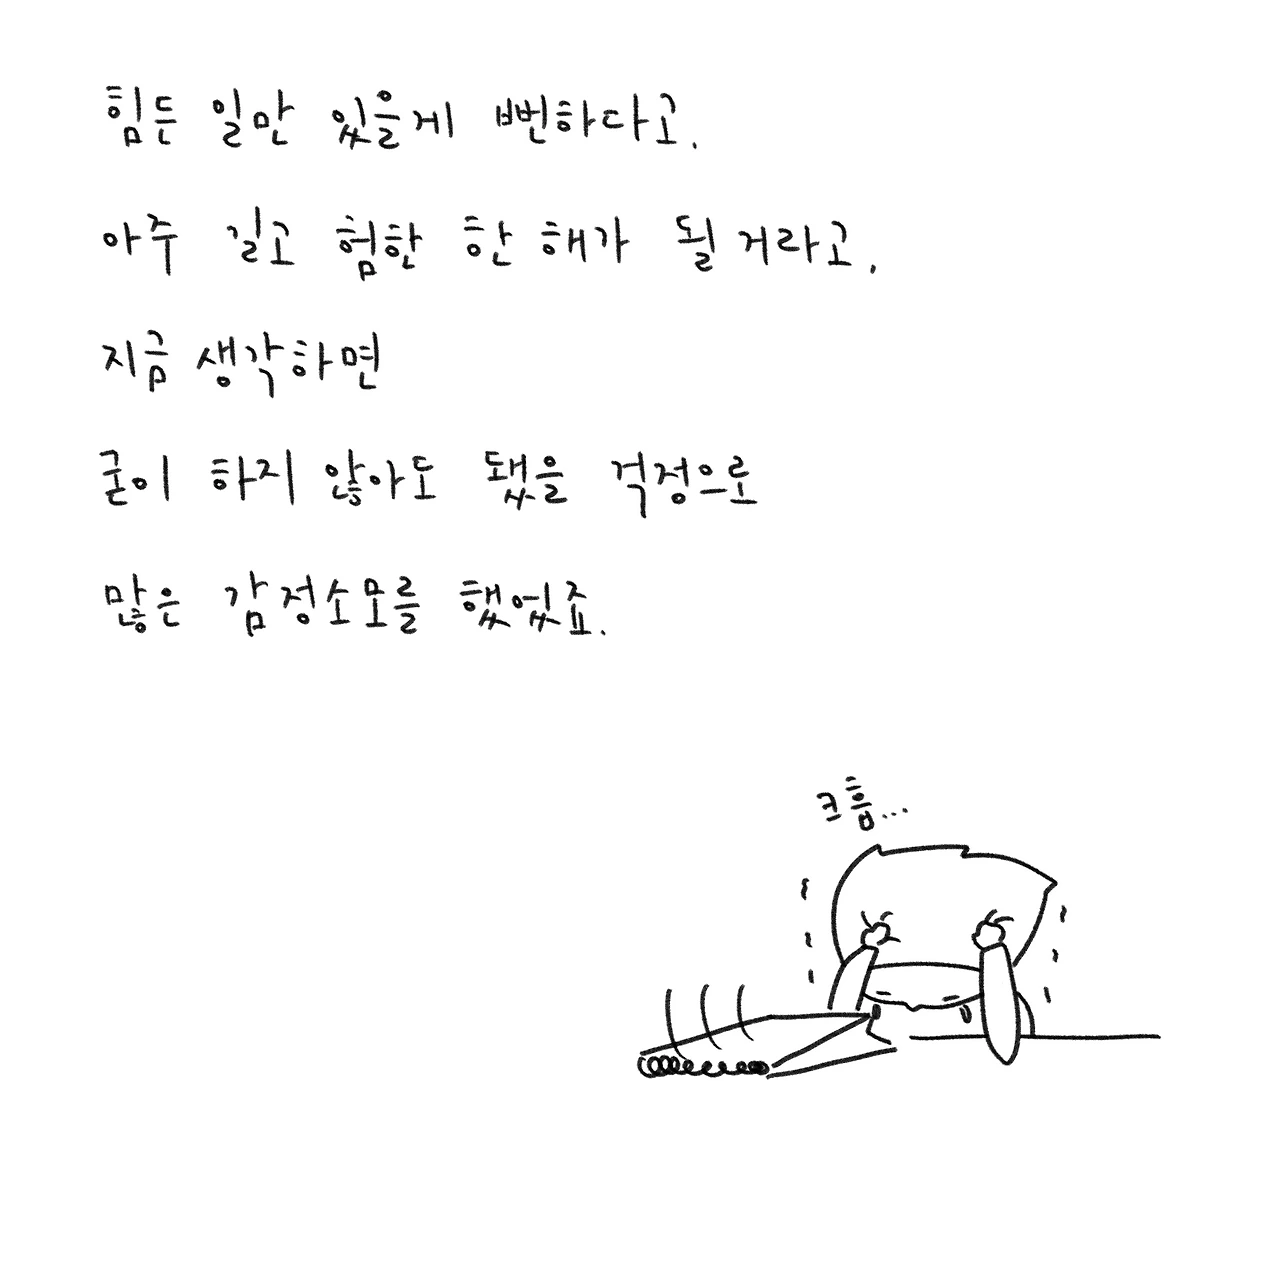 힘든 일만 있을게 뻔하다고.
아주 길고 험한 한 해가 될 거라고.
지금 생각하면
굳이 하지 않아도 됐을 걱정으로
많은 감정소모를 했었죠.
크흠...